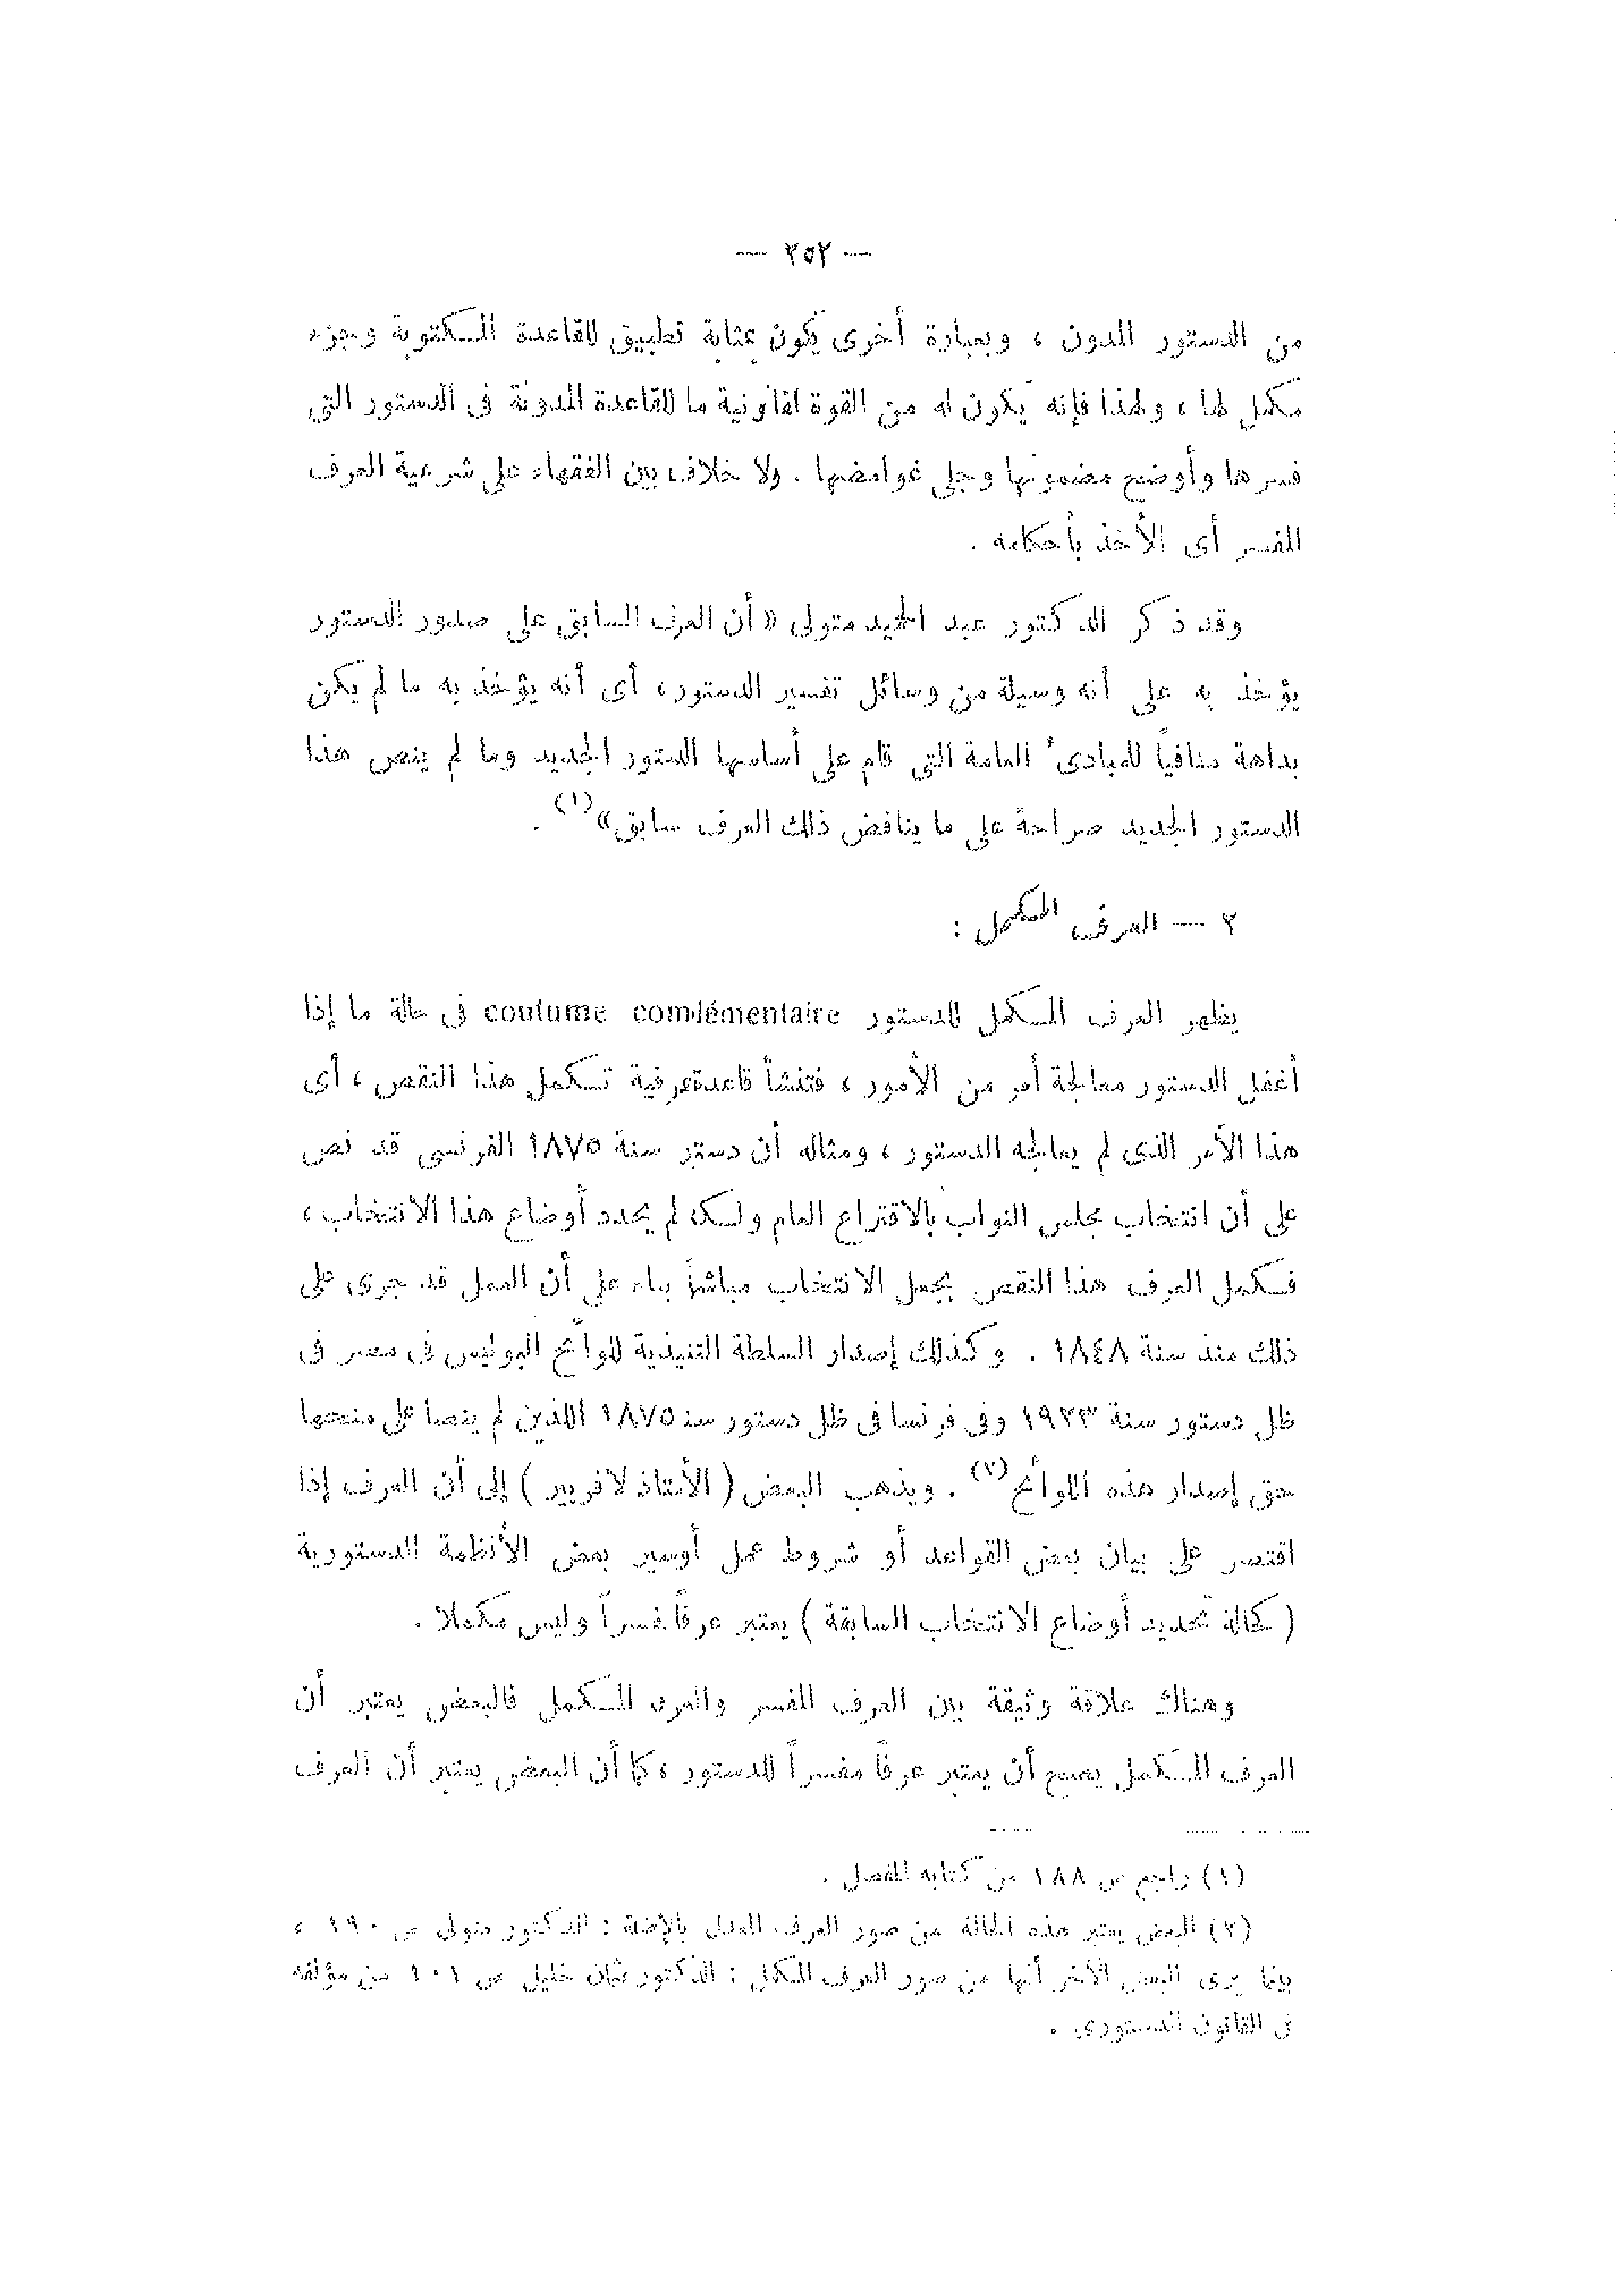 — ٢٥٢ —
من الدستور المدون ، وبعبارة أخرى يكون بمثابة تطبيق للقاعدة المكتوبة وجزء
مكمل لها ، ولهذا فإنه يكون له من القوة القانونية ما للقاعدة المدونة فى الدستور التى
فسرها وأوضح مضمونها وجلى غوامضها . ولا خلاف بين الفقهاء على شرعية العرف
المفسر أى الأخذ بأحكامه .
وقد ذكر الدكتور عبد الحميد متولى « أن العرف السابق على صدور الدستور
يؤخذ به على أنه وسيلة من وسائل تفسير الدستور ، أى أنه يؤخذ به ما لم يكن
بداهة منافياً للمبادىء العامة التى قام على أساسها الدستور الجديد وما لم ينص هذا
الدستور الجديد صراحة على ما يناقض ذلك العرف سابق » (١) .
٢ — العرف المكمل :
يظهر العرف المكمل للدستور coutume comdémentaire فى حالة ما إذا
أغفل الدستور معالجة أمر من الأمور ، فتنشأ قاعدة عرفية تكمل هذا النقص ، أى
هذا الأمر الذى لم يعالجه الدستور ، ومثاله أن دستر سنة ١٨٧٥ الفرنسى قد نص
على أن انتخاب مجلس النواب بالاقتراع العام ولكنه لم يحدد أوضاع هذا الانتخاب ،
فكمل العرف هذا النقص بجعل الانتخاب مباشراً بناء على أن العمل قد جرى على
ذلك منذ سنة ١٨٤٨ . وكذلك إصدار السلطة التنيذية للوائح البوليس فى مصر فى
ظل دستور سنة ١٩٢٣ وفى فرنسا فى ظل دستور سنة ١٨٧٥ اللذين لم ينصا على منحها
حق إصدار هذه اللوائح (٢) . ويذهب البعض ( الأستاذ لافريير ) إلى أن العرف إذا
اقتصر على بيان بعض القواعد أو شروط عمل أوسير بعض الأنظمة الدستورية
( كحالة تحديد أوضاع الانتخاب السابقة ) يعتبر عرفاً مفسراً وليس مكملا .
وهناك علاقة وثيقة بين العرف المفسر والعرف المكمل فالبعض يعتبر أن
العرف المكمل يصح أن يعتبر عرفاً مفسراً للدستور ، كما أن البعض يعتبر أن العرف
(١) راجع ص ١٨٨ من كتابه المفصل .
(٢) البعض يعتبر هذه الحالة من صور العرف المعدل بالإضافة : الدكتور متولى ص ١٩٠ ،
بينما يرى البعض الآخر أنها من صور العرف المكمل : الدكتور عثمان خليل ص ١٠١ من مؤلفه
فى القانون الدستورى .